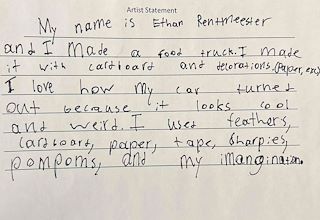 Artist Statement
My name is Ethan Rentmeester
and I made a food truck. I made
it with cardboard and decorations. (Paper, exc)
I love how my car turned
out because it looks cool
and weird. I used feathers,
cardboard, paper, tape, Sharpies,
pompoms, and my imangination.